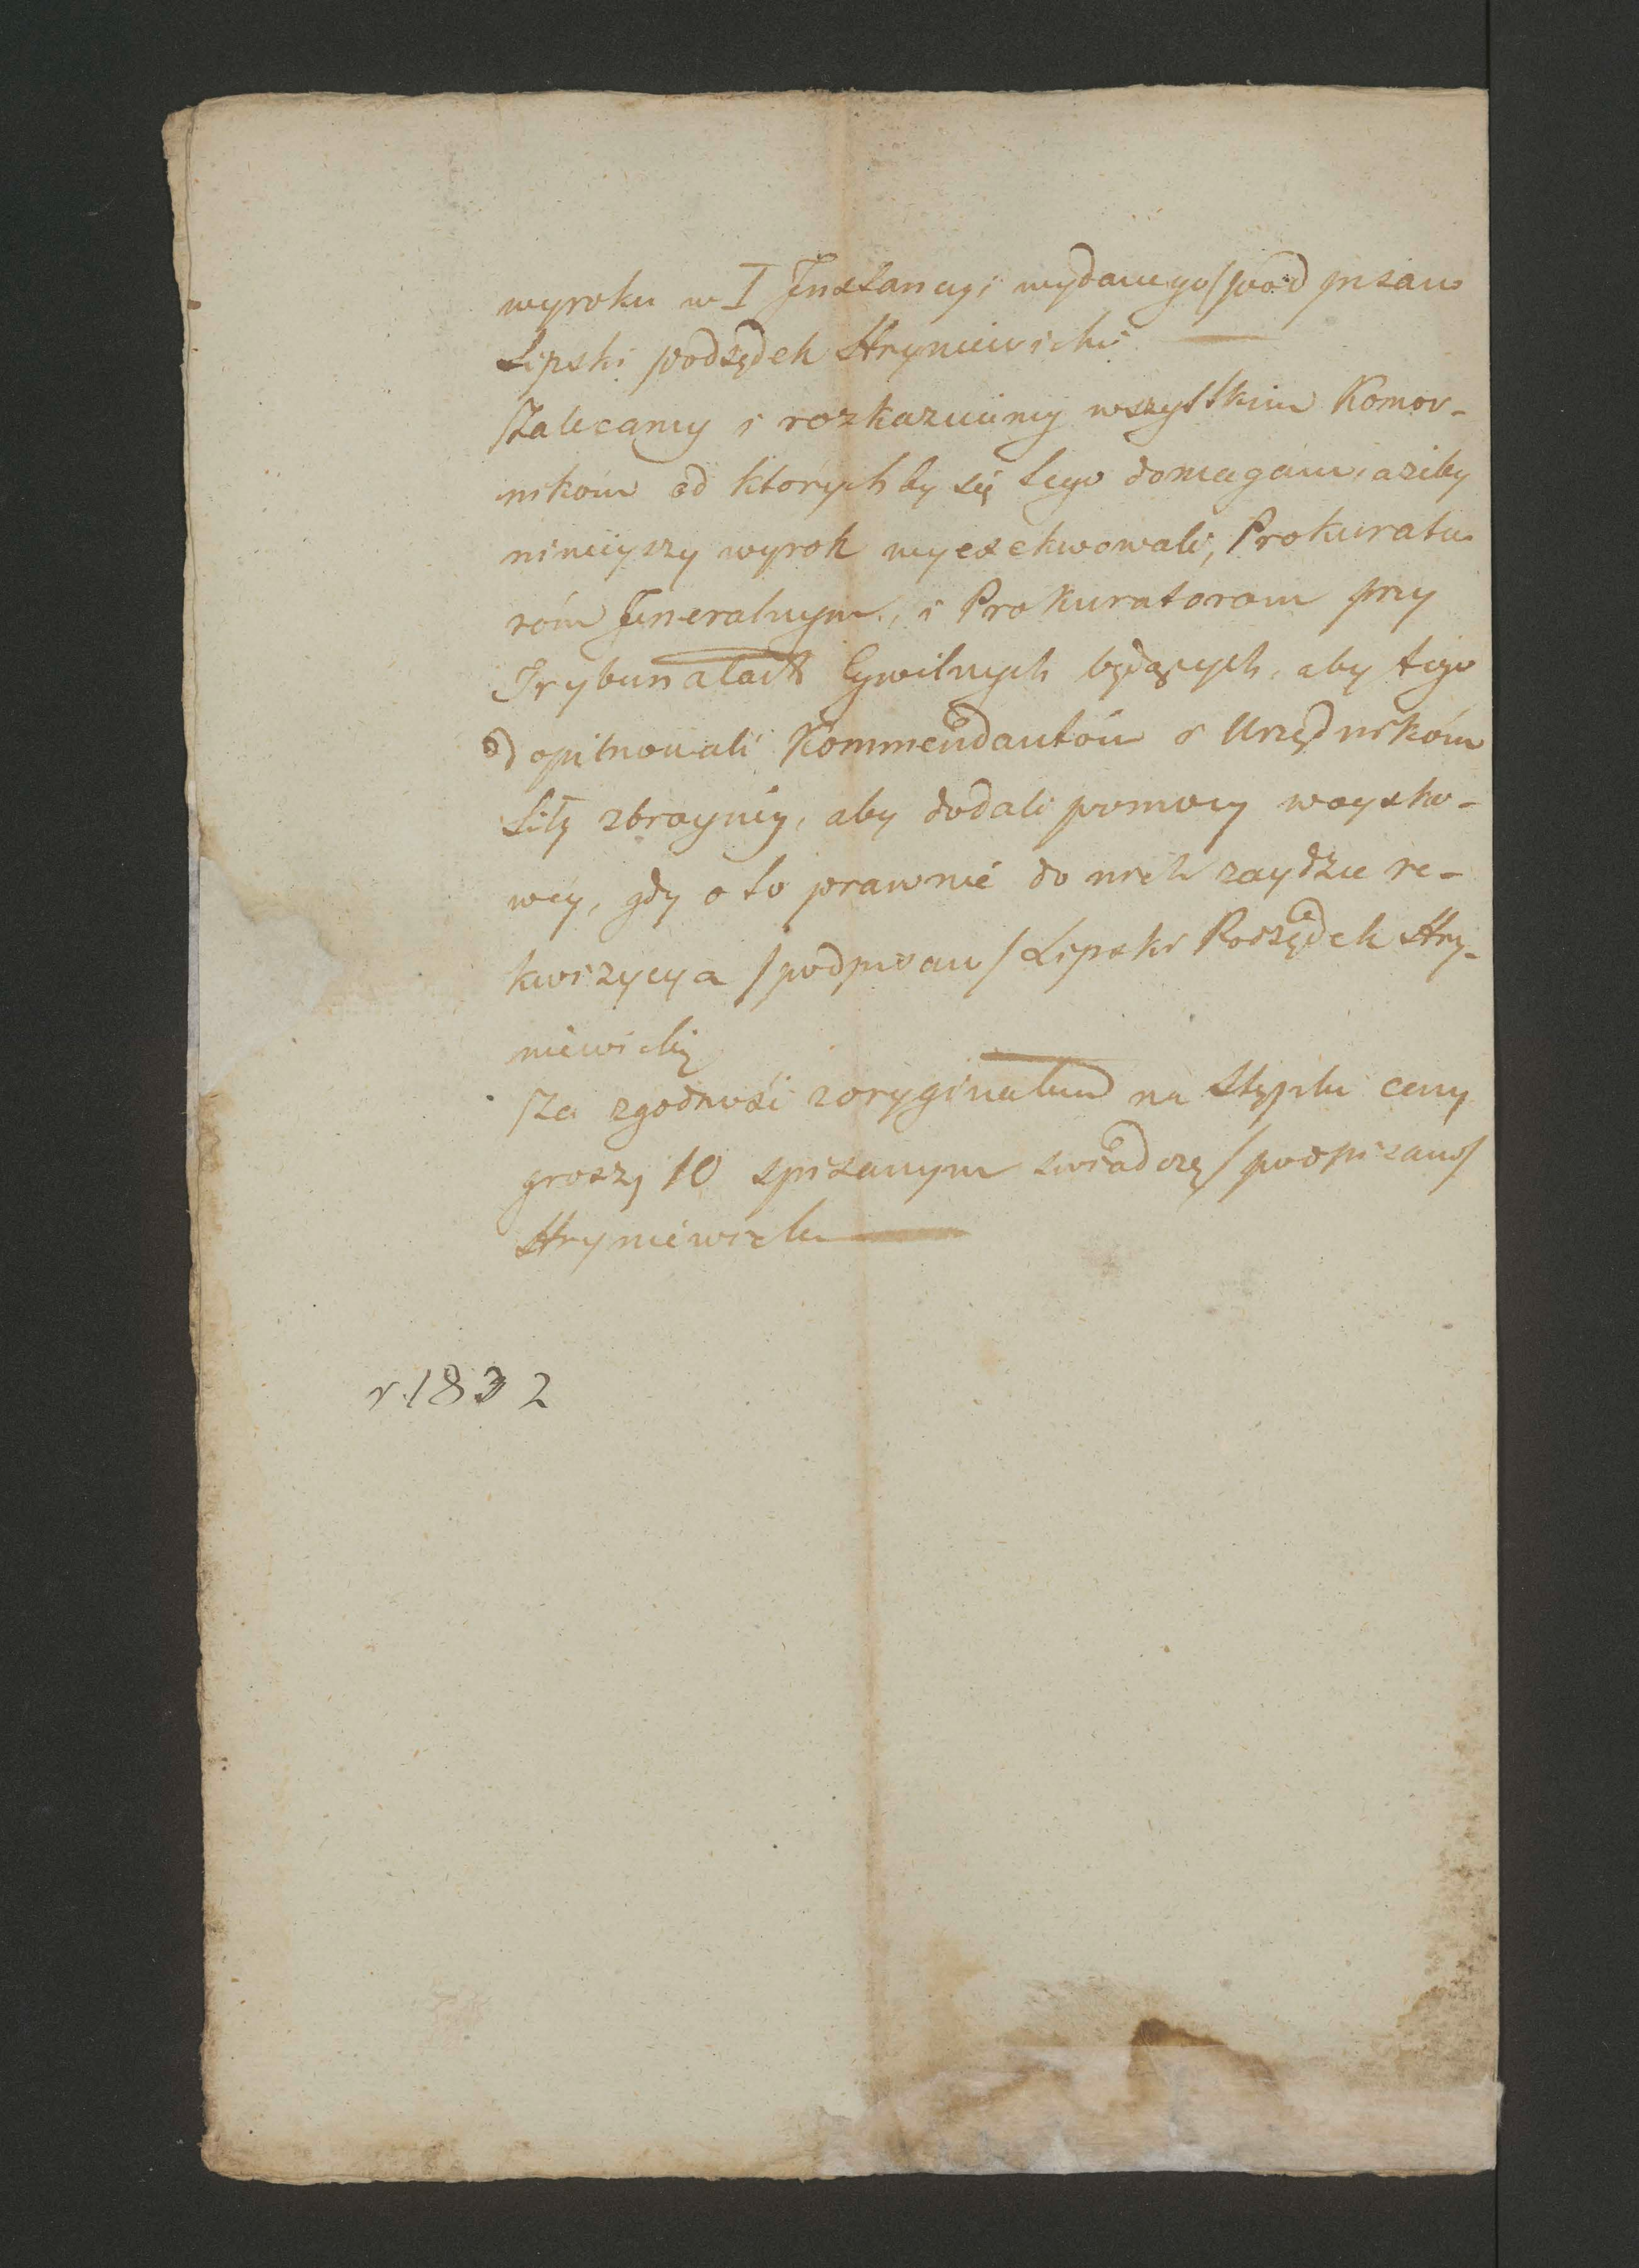 wyroku w I Jnstancyi wydanego /pod pisano
Lipski podsędek Hryniewicki
Zalecamy i rozkazuiemy wszystkim Komor-
nikom od których by się tego domagano, ażeby
ninieyszy wyrok wyexekwowali, Prokurato
róm Jeneralnym, i Prokuratorom przy
Trybunałach Cywilnych będących, aby tego
dopilnowali Kommendantóm i Urzędnikóm
Siły zbroyney, aby dodali pomocy woysko-
wey, gdy o to prawnie do nich zaydzie re-
kwizycya /podpisano/ Lipski Podsędek Hry-
niewicki
Za zgodność z oryginałem na Stęplu ceny
groszy 10 spisanym świadczę /podpisano/
Hryniewicki
r. 1832